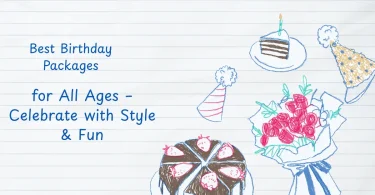 Best Birthday
Packages
for All Ages –
Celebrate with Style
& Fun